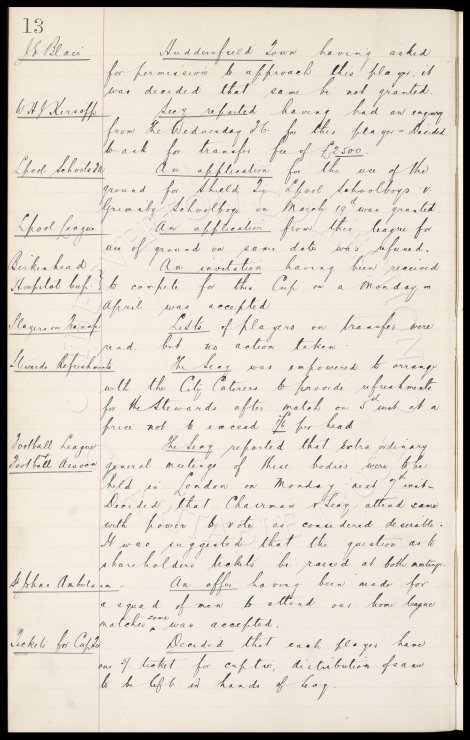 13
J E Blair Huddersfield Town having asked
for permission to approach this player, it
was decided that same be not granted.
W H J Kersopp Secy reported having had an enquiry
from The Wednesday F.C. for this player - Decided
to ask for transfer fee of £2500.
Lpool Schools FA An application for the use of the
ground for Shield Tie Lpool Schoolboys v.
Grimsby Schoolboys on March 19th was granted.
Lpool League An application from this league for
use of ground on same date was refused.
Birkenhead An invitation having been received
Hospital Cup } to compete for this Cup on a Monday in
April was accepted
Players on Transfr Lists of players on transfer were
read but no action taken.
Stewards Refreshments The Secy was empowered to arrange
with the City Caterers to provide refreshments
for the Stewards after match on 5th inst at a
price not to exceed per head
Football League The Secy reported that extra ordinary
Football Assocn general meetings of these bodies were to be
held in London on Monday next 7th inst-
Decided that Chairman & Secy attend same
with power to vote as considered desirable.
It was suggested that the question as to
shareholders tickets be raised at both meetings.
St Johns Ambulance - An offer having been made for
a squad of men to attend our home league
matches same was accepted.
Tickets for Cup Tie Decided that each player have
one 5/- ticket for cup tie, distribution of same
to be left in hands of Secy.